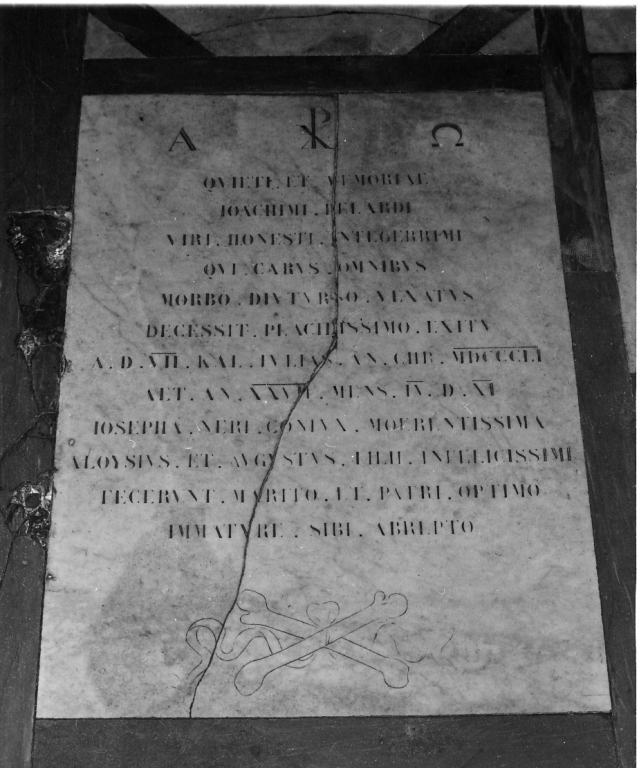 Α ☧ Ω
QVIETI . ET . MEMORIAE
IOACHIMI . BELARDI
VIRI . HONESTI . INTEGERRIMI
QVI . CARVS . OMNIBVS
MORBO . DIVTVRSO . VEXATVS
DECESSIT . PLACIDISSIMO . EXITV
A . D . VII . KAL . IVLIAS . AN . CHR . MDCCCLI
AET . AN . XXVII . MENS . IV . D . XI
IOSEPHA . NERI . CONIVX . MOERENTISSIMA
ALOYSIVS . ET . AVGVSTVS . FILII . INFELICISSIMI
FECERVNT . MARITO . ET . PATRI . OPTIMO
IMMATVRE . SIBI . ABREPTO